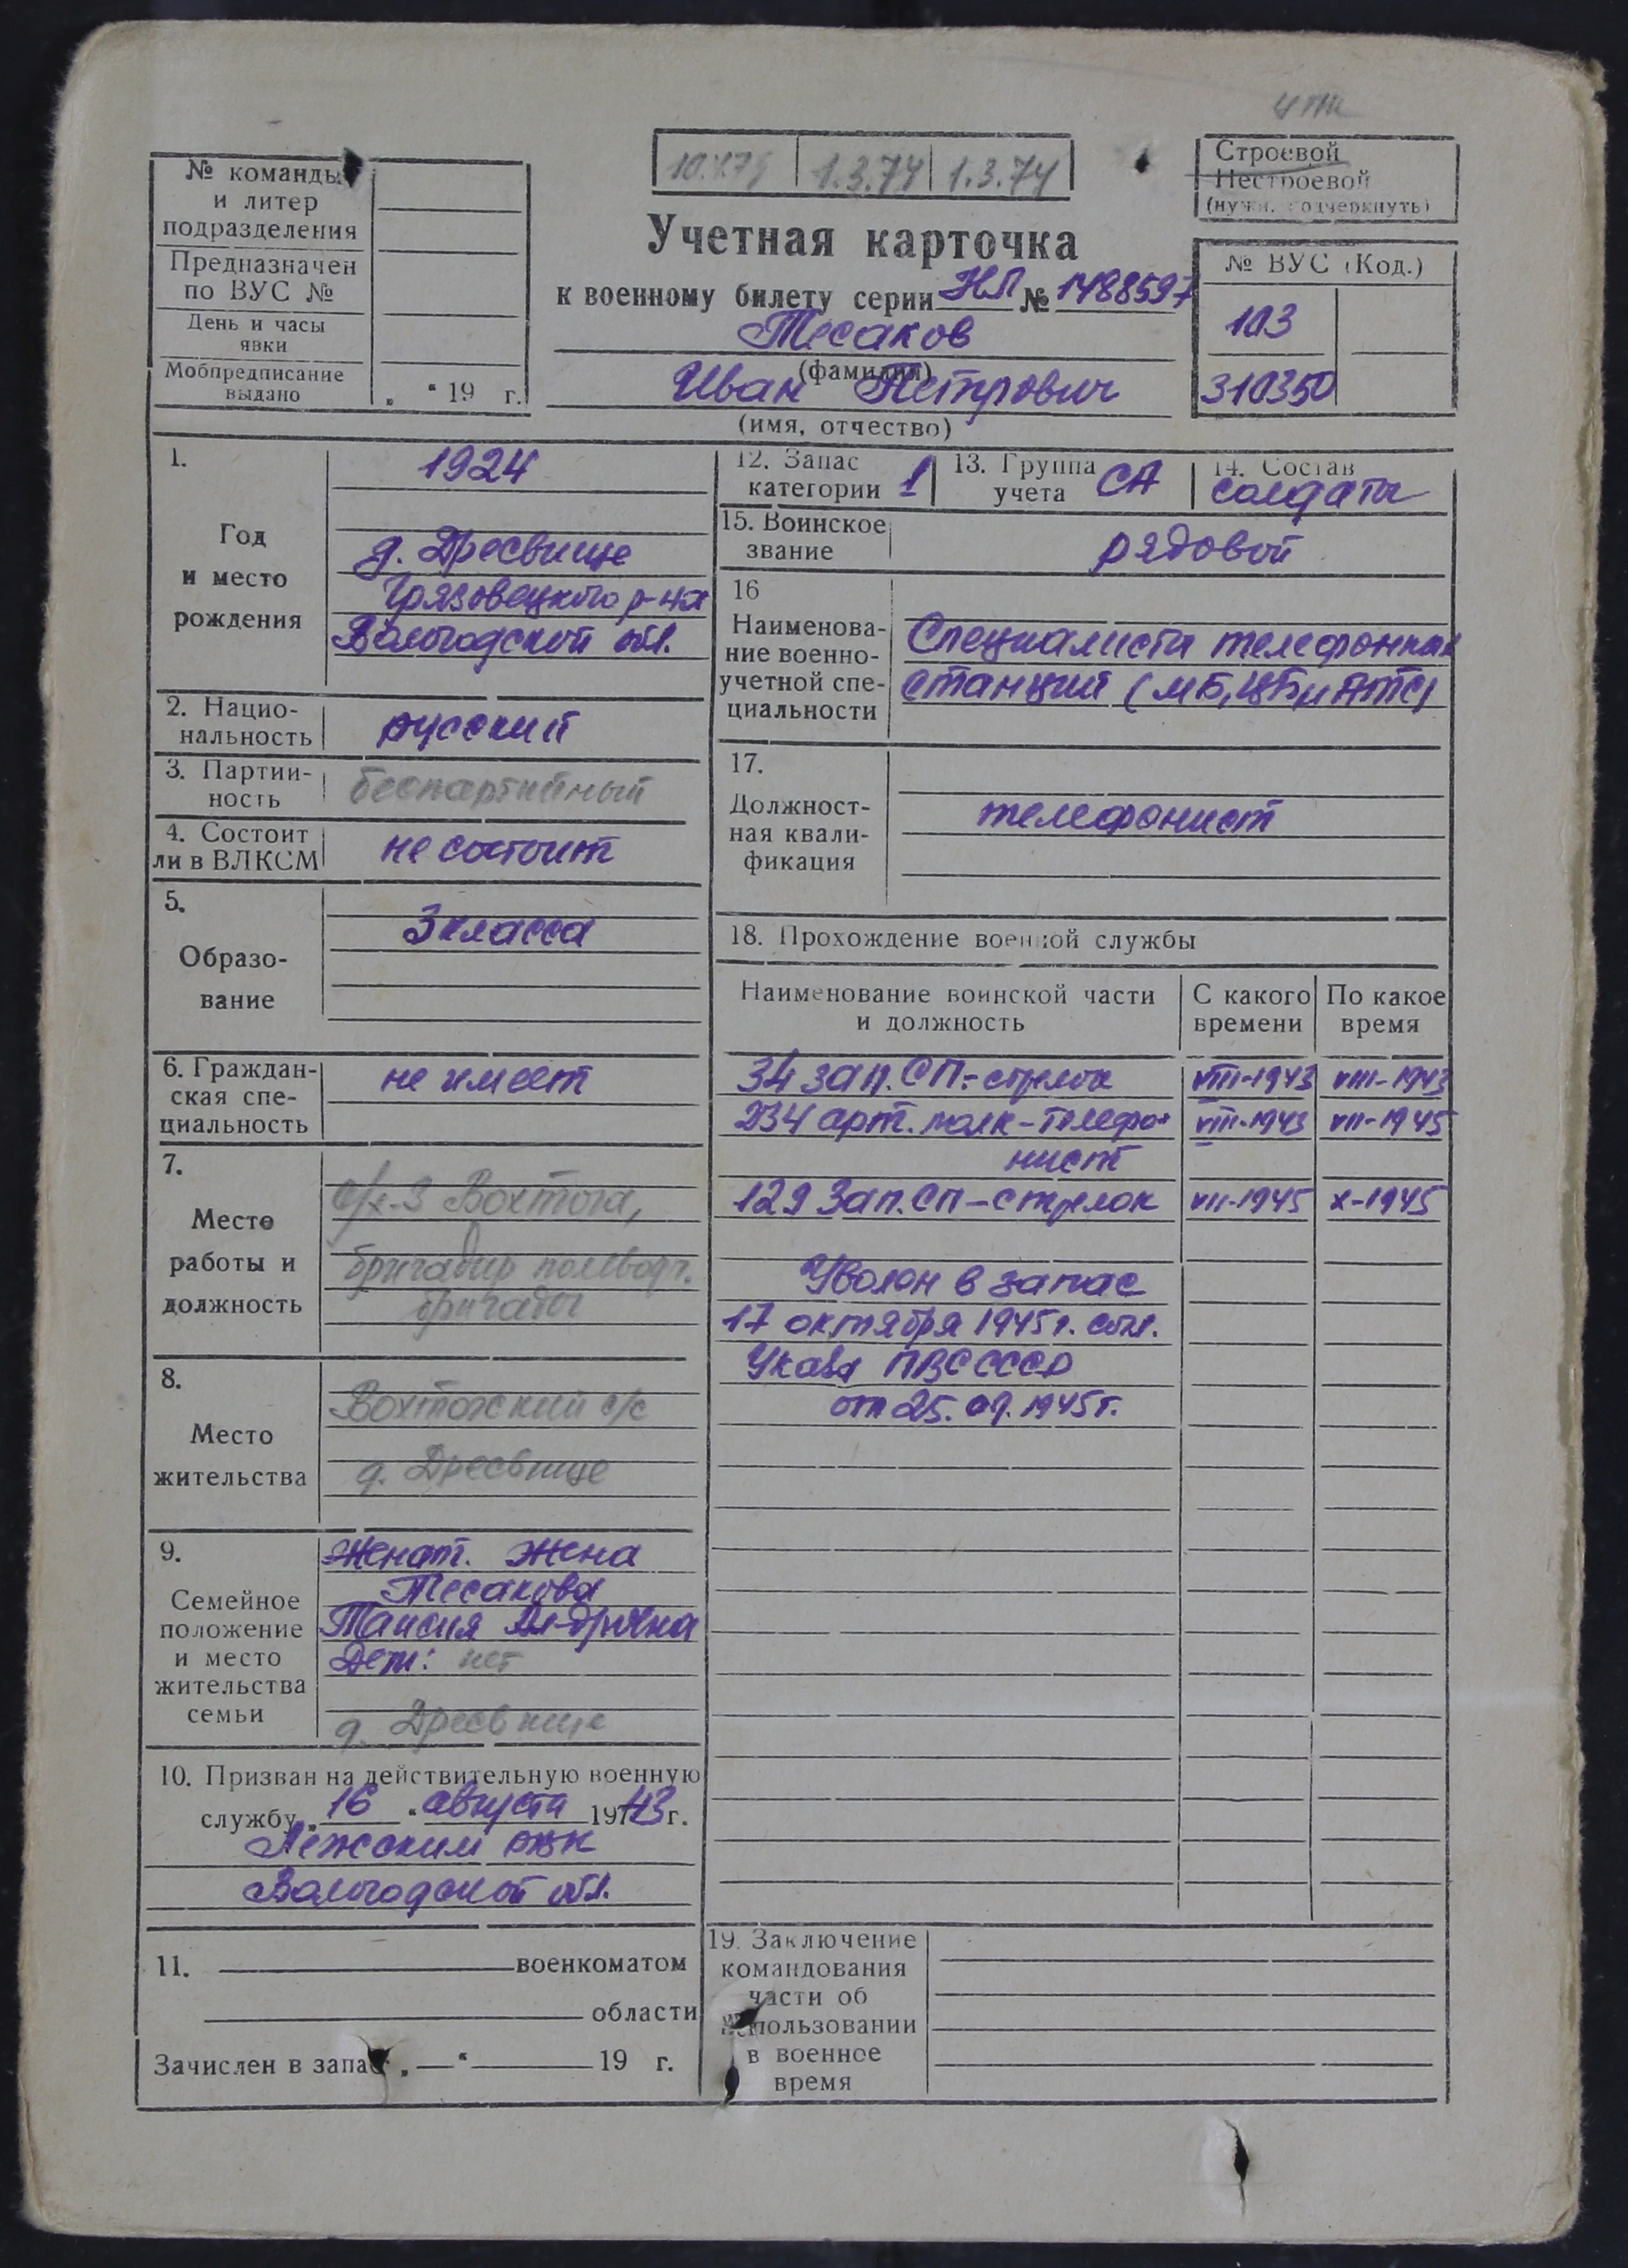 Строевой
Нестроевой
(нужн. подчеркнуть)
№ команды
и литер
подразделения
Предназначен
по ВУС №
День и часы
явки
Мобпредписание
выдано
„ “ 19 г.
1.3.74 1.3.74
Учетная карточка
к военному билету серии НЛ № 1488597
Тесаков
(фамилия)
Иван Петрович
(имя, отчество)
№ ВУС (Код.)
103
310350
1.
Год
и место
рождения
1924
д. Дресвище
Грязовецкого р-на
Вологодской обл.
2. Нацио-
нальность
русский
3. Партий-
ность
беспартийный
4. Состоит
ли в ВЛКСМ
не состоит
5.
Образо-
вание
3 класса
6. Граждан-
ская спе-
циальность
не имеет
7.
Место
работы и
должность
с/х-з Вохтога,
бригадир полеводч.
бригады
8.
Место
жительства
Вохтожский с/с
д. Дресвище
9.
Семейное
положение
и место
жительства
семьи
Женат. Жена
Тесакова
Таисия
Дети: нет
д. Дресвище
10. Призван на действительную военную
службу „ 16 “ августа 1943 г.
Лежским РВК
Вологодской обл.
11. военкоматом
области
Зачислен в запас „ — “ 19 г.
12. Запас
категории 1
13. Группа
учета СА
14. Состав
солдаты
15. Воинское
звание
рядовой
16
Наименова-
ние военно-
учетной спе-
циальности
Специалисты телефонных
станций (МБ, ЦБ и АТС)
17.
Должност-
ная квали-
фикация
телефонист
18. Прохождение военной службы
Наименование воинской части
и должность
С какого
времени
По какое
время
34 зап. СП.- стрелок VIII-1943 VIII-1943
234 арт. полк - телефо- VIII-1943 VII-1945
нист
129 Зап. СП - стрелок VII-1945 X-1945
Уволен в запас
17 октября 1945 г. согл.
Указа ПВС СССР
от 25.09.1945 г.
19. Заключение
командования
части об
использовании
в военное
время